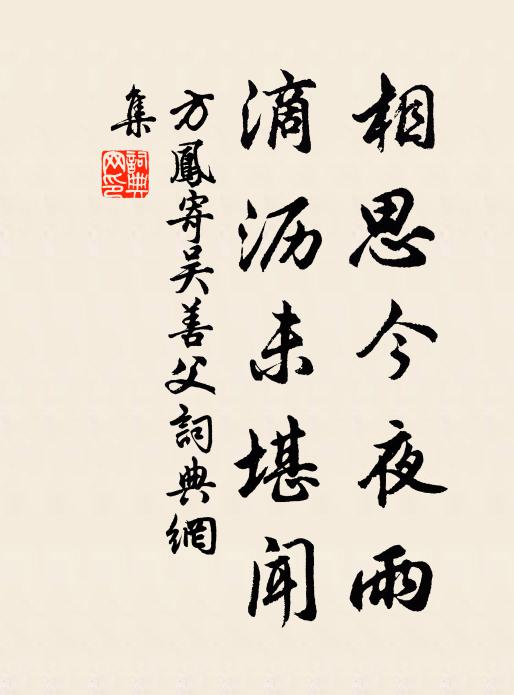 相思今夜雨
滴沥未堪闻
方鳳寄吴善父詞典網
集
詞典
网印